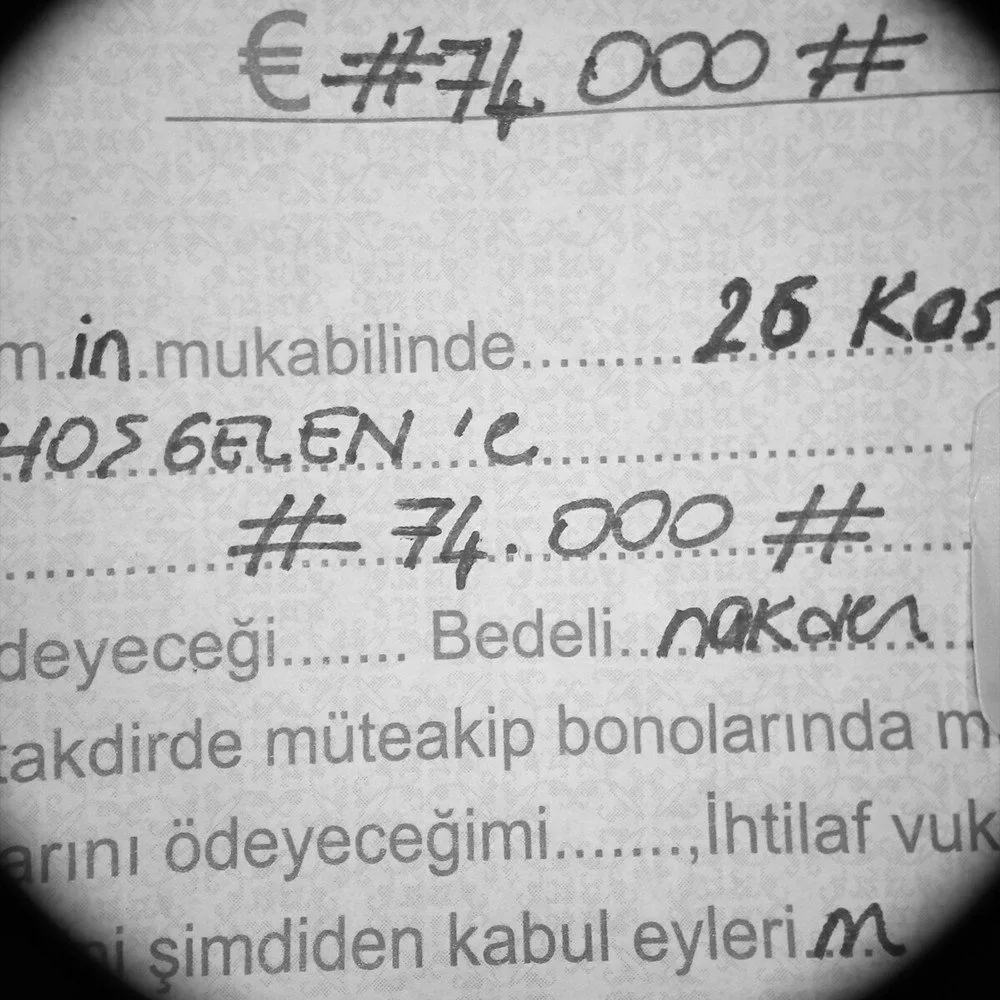 € # 74.000 #
m.in.mukabilinde........26 Kas
HOŞGELEN 'e
# 74.000 #
deyeceği....... Bedeli..nakden
takdirde müteakip bonolarında m.
arını ödeyeceğimi.......,İhtilaf vuk
şimdiden kabul eyleri..m